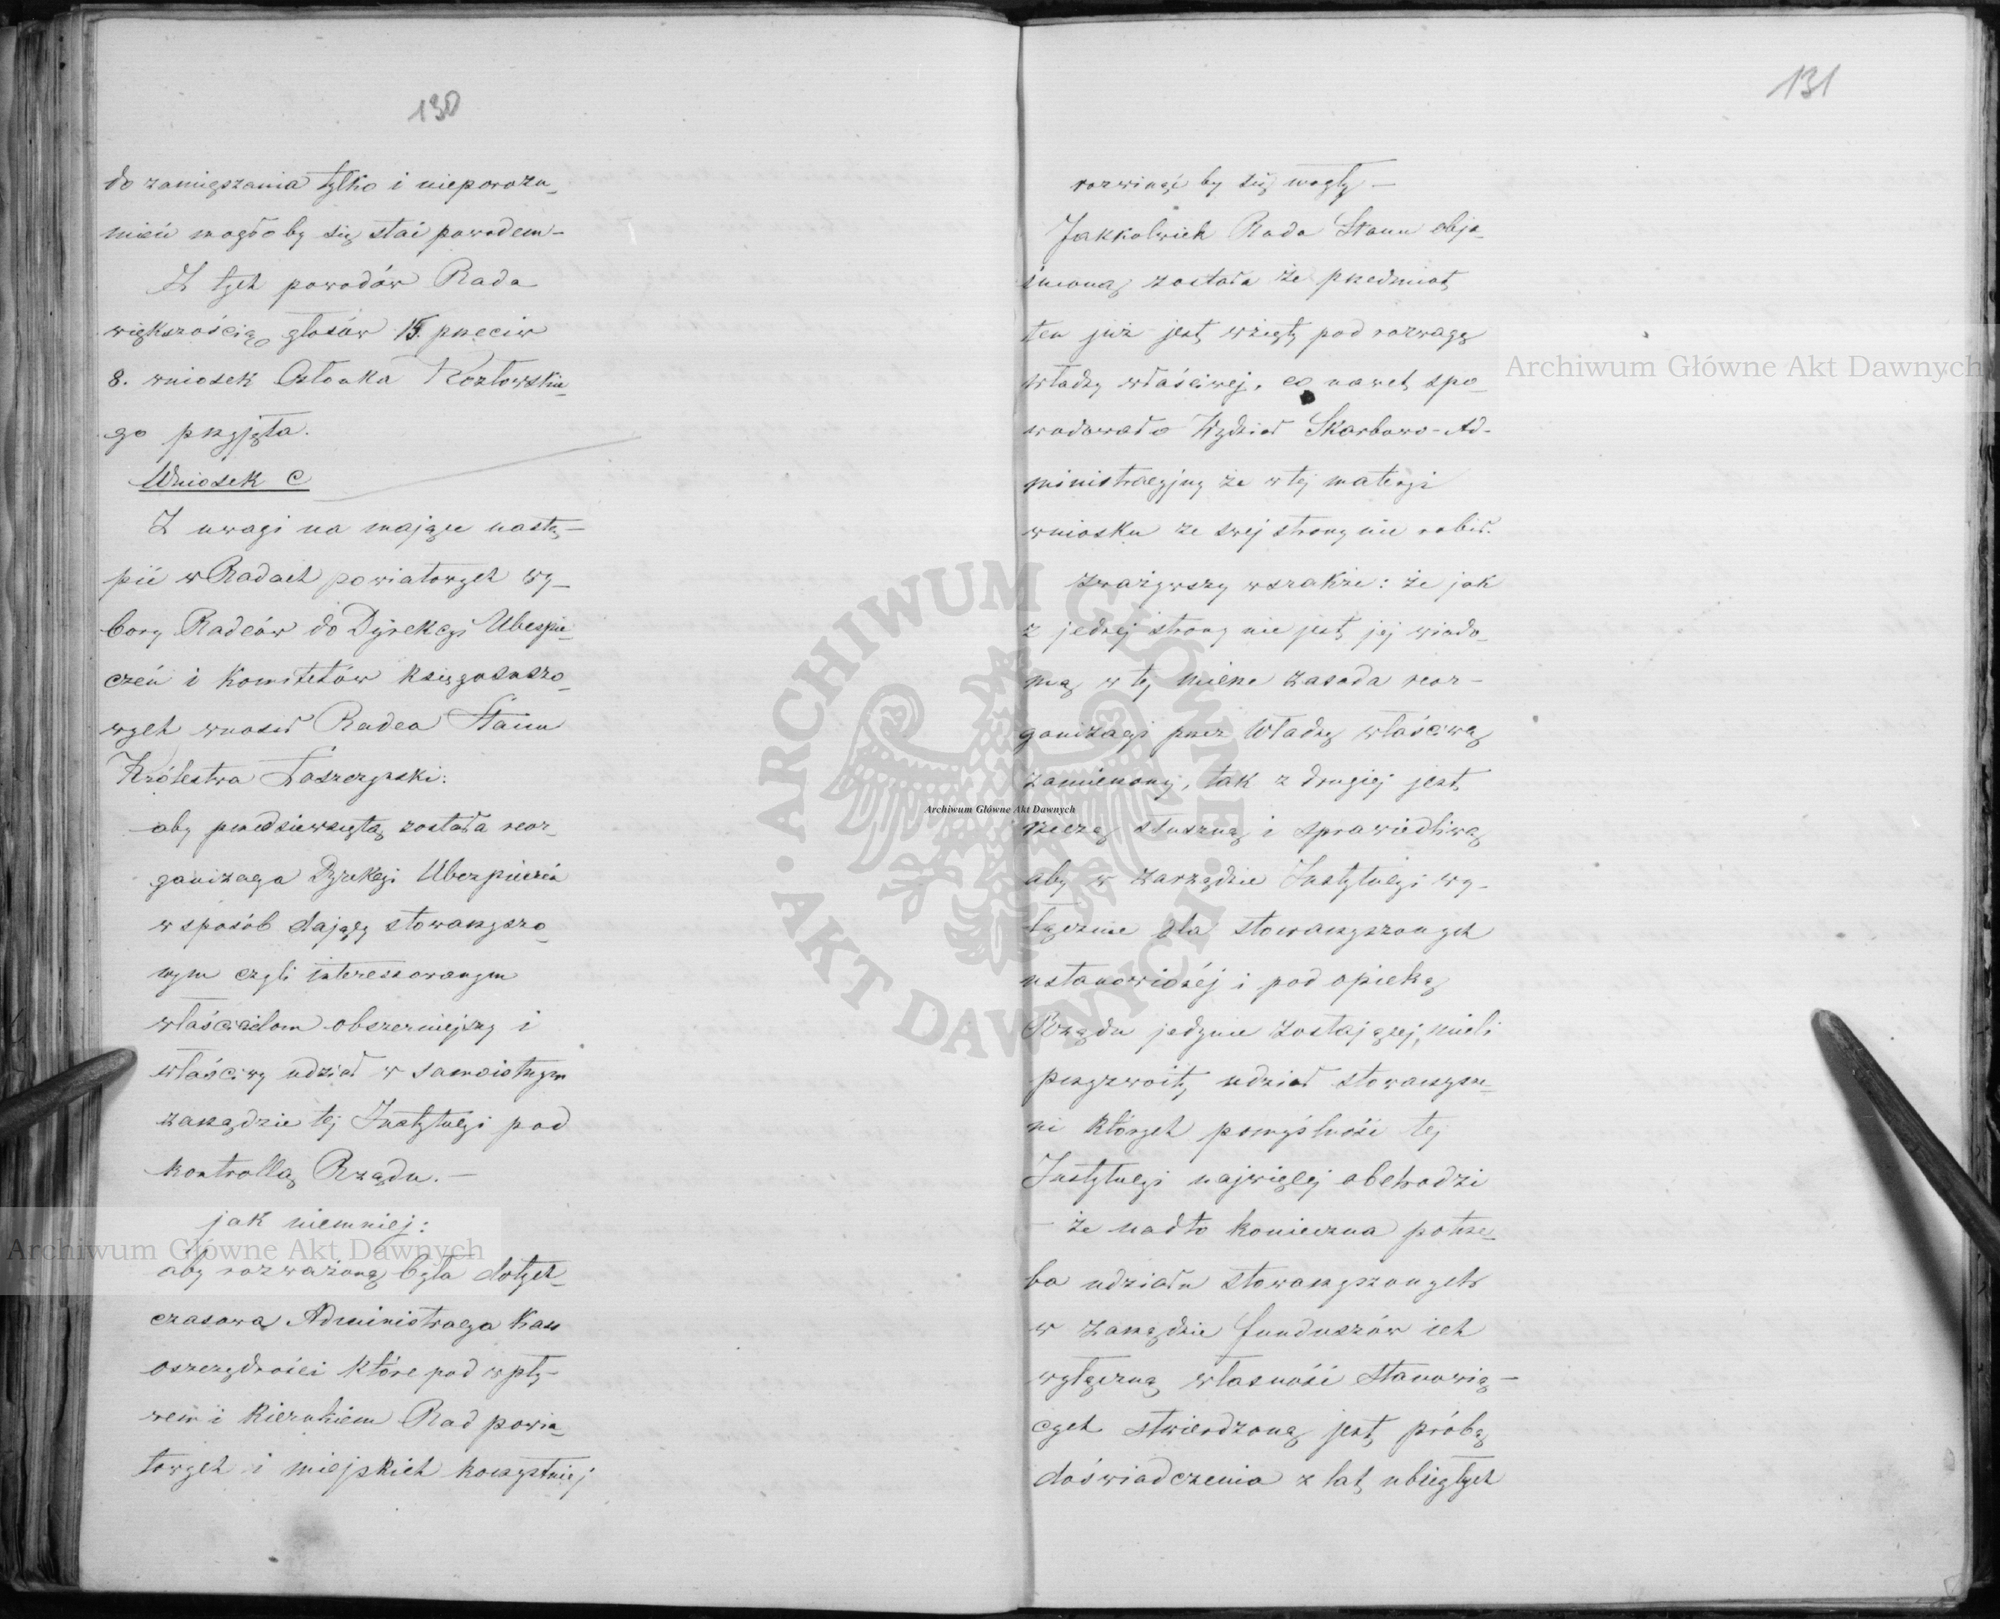 130
do zamięszania tylko i nieporozu-
mień mogłoby się stać powodem-
Z tych powodów Rada
większością głosów 15. przeciw
8. wniosek Członka Kozłowskie-
go przyjęła.
Wniosek C
Z uwagi na mające nastą-
pić w Radach powiatowych wy-
bory Radców do Dyrekcyi Ubezpie-
czeń i Komitetów księgosuszo-
wych wnosił Radca Stanu
Królestwa Łaszczyński:
aby przedsiewziętą została reor-
ganizacya Dyrekcyi Ubezpieczeń
w sposób dający stowarzyszo-
nym czyli interessowanym
właścicielom obszerniejszy i
właściwy udział w samoistnym
zarządzie tej Instytucyi pod
kontrollą Rządu. —
jak niemniej:
aby rozważoną była dotych-
czasowa Administracya Kass
oszczędności które pod wpły-
wem i kierunkiem Rad powia-
towych i miejskich korzystniej
131
rozwinąć by się mogły —
Jakkolwiek Rada Stanu obja-
śnioną została że przedmiot
ten już jest wzięty pod rozwagę
władzy właściwej, co nawet spo-
wodowało Wydział Skarbowo-Ad-
ministracyjny że w tej materyi
wniosku ze swej strony nie robił.
Zważywszy wszakże: że jak
z jednej strony nie jest jej wiado-
mą w tej mierze zasada reor-
ganizacyi przez Władzę właściwą
zamierzony, tak z drugiej jest
rzeczą słuszną i sprawiedliwą
aby w zarządzie Instytucyi wy-
łącznie dla stowarzyszonych
ustanowionéj i pod opieką
Rządu jedynie zostającej, mieli
przyzwoity udział stowarzysze-
ni których pomyślność tej
Instytucyi najwięcej obchodzi
— że nadto konieczna potrze-
ba udziału stowarzyszonych
w zarządzie funduszów ich
wyłączną własność stanowią-
cych stwierdzoną jest próbą
doświadczenia z lat ubiegłych
Archiwum Główne Akt Dawnych
Archiwum Główne Akt Dawnych
Archiwum Główne Akt Dawnych
ARCHIWUM GŁÓWNE
AKT DAWNYCH